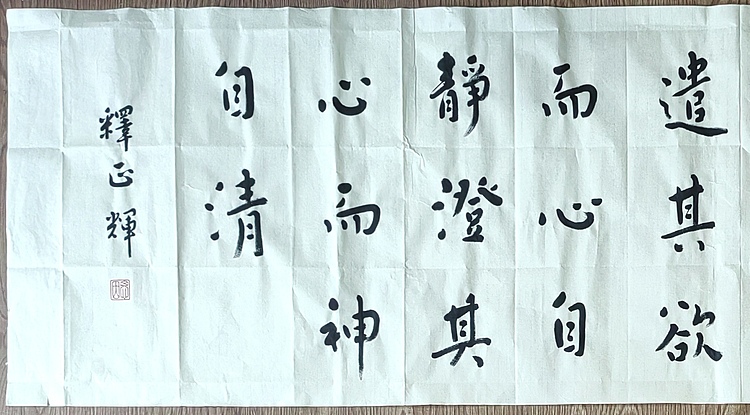 遣其欲
而心自
靜澄其
心而神
自清
釋正輝